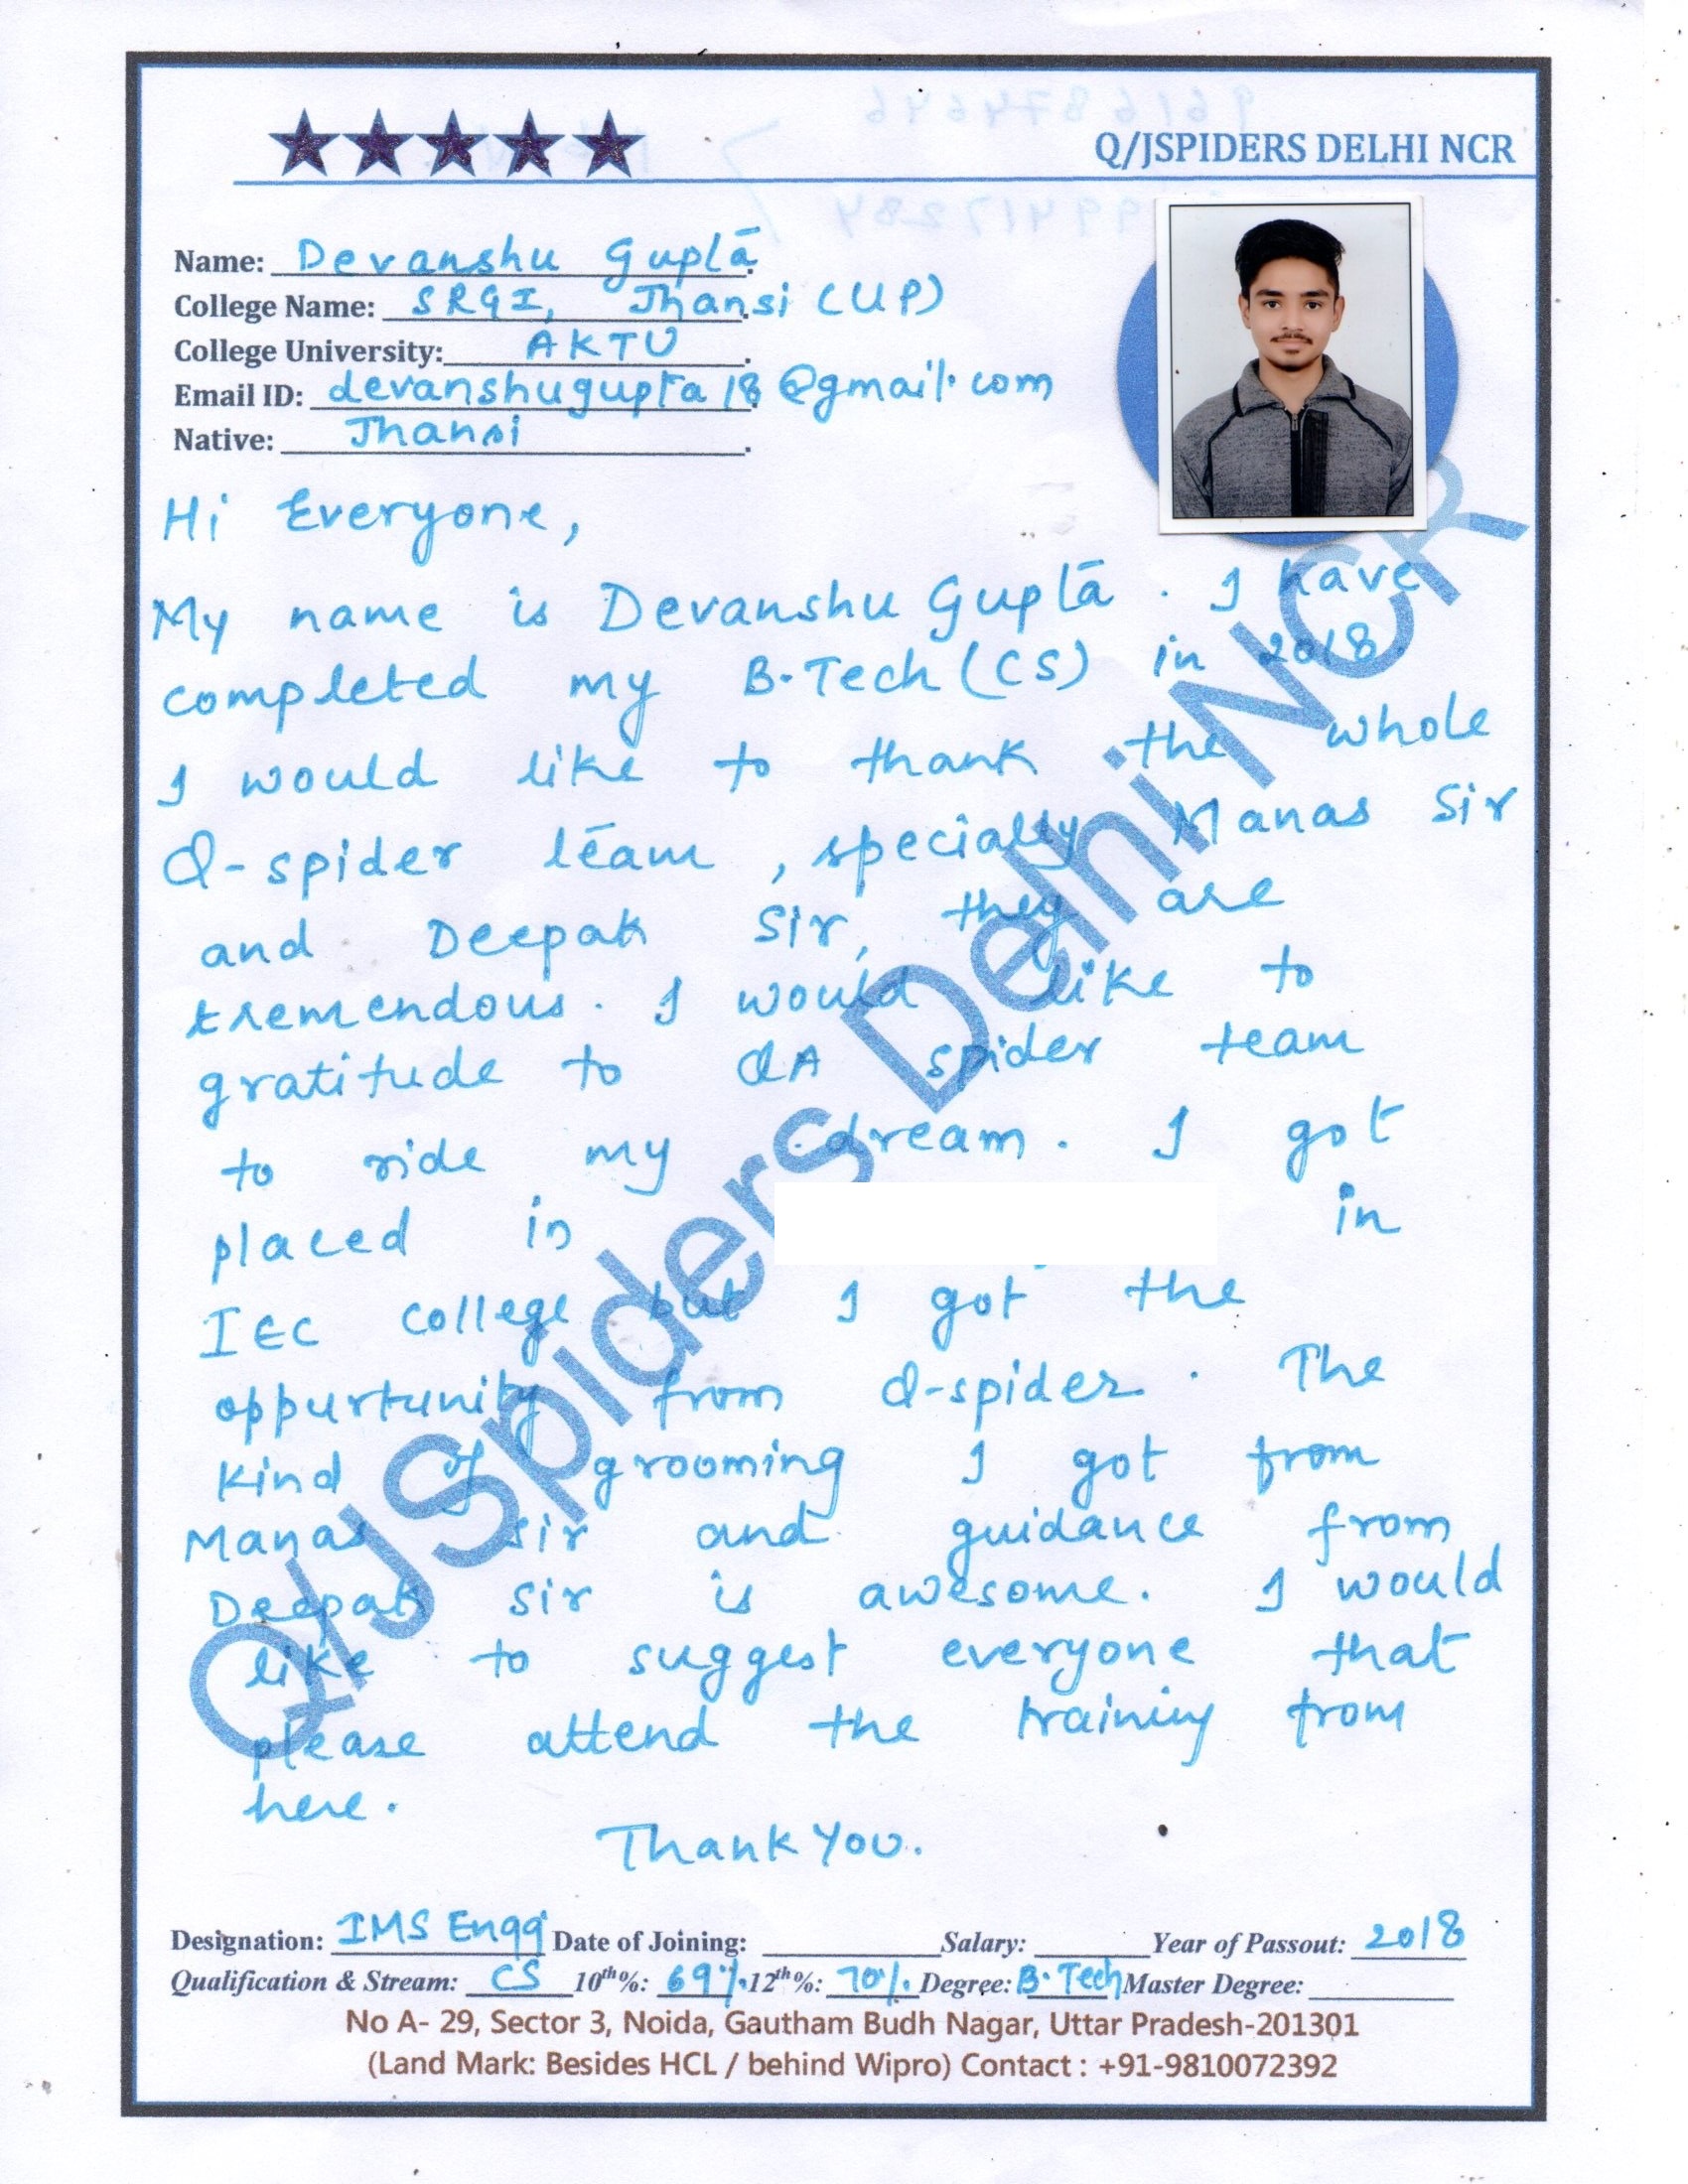 Q/JSPIDERS DELHI NCR
Name: Devanshu Gupta
College Name: SRGI, Jhansi (UP)
College University: AKTU
Email ID: devanshugupta18@gmail.com
Native: Jhansi
Hi Everyone,
My name is Devanshu Gupta. I have
completed my B.Tech (CS) in 2018.
I would like to thank the whole
Q-spider team, specially Manas Sir
and Deepak Sir, they are
tremendous. I would like to
gratitude to QA spider team
to ride my dream. I got
placed in in
IEC college but I got the
oppurtunity from Q-spider. The
kind of grooming I got from
Manas sir and guidance from
Deepak sir is awesome. I would
like to suggest everyone that
please attend the training from
here.
Thank You.
Q/JSpiders Delhi NCR
Designation: IMS Engg Date of Joining: Salary: Year of Passout: 2018
Qualification & Stream: CS 10th%: 69% 12th%: 70% Degree: B.Tech Master Degree:
No A- 29, Sector 3, Noida, Gautham Budh Nagar, Uttar Pradesh-201301
(Land Mark: Besides HCL / behind Wipro) Contact : +91-9810072392